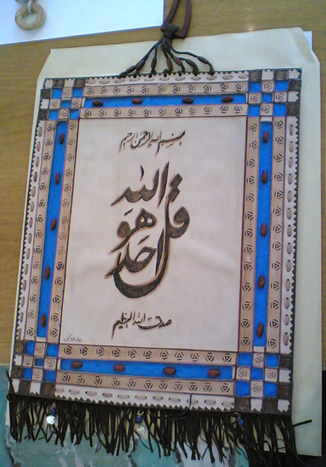 بسم الله الرحمن الرحيم
قل هو الله احد
صدق الله العظيم